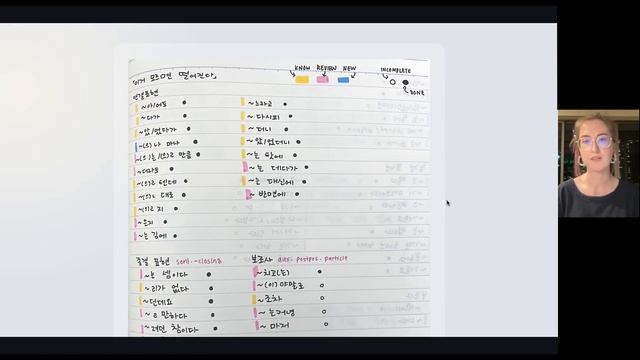 이거 모르면 떨어진다.
KNOW REVIEW NEW INCOMPLETE
DONE
연결표현
~아/어도
~다가
~았/었다가
~(으)나 마나
~(으)ㄴ/는/(으)ㄹ 만큼
~더라도
~(으)ㄹ 텐데
~(으)ㄴ 대로
~(으)ㄹ지
~은지
~는 김에
~느라고
~다시피
~더니
~았/었더니
~는 탓에
~는 데다가
~는 대신에
~반면에
종결 표현 sent.-closing
~는 셈이다
~리가 없다
~던데요
~ㄹ 만하다
~려던 참이다
보조사 aux. postpos. particle
~치고(는)
~(이)야말로
~조차
~는커녕
~마저